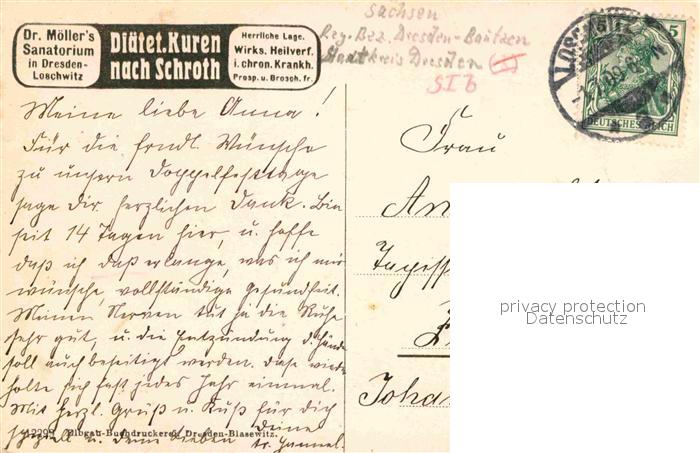 Dr. Möller's
Sanatorium
in Dresden-
Loschwitz
Diätet. Kuren
nach Schroth
Herrliche Lage.
Wirks. Heilverf.
i. chron. Krankh.
Prosp. u. Brosch. fr.
Sachsen
Reg. Bez. Dresden-Bautzen
Stadtkreis Dresden
SIb
LOSCHWITZ
5
DEUTSCHES REICH
Meine liebe Anna!
Für die frndl. Wünsche
zu unsern Doppelfesttage
sage Dir herzlichen Dank. Bin
seit 14 Tagen hier, u. hoffe
daß ich daß erlange, was ich mir
wünsche, vollständige Gesundheit.
Meinen Nerven tut ja die Ruhe
sehr gut, u. die Entzündung d. Hände
soll auch beseitigt werden. Dase wieder
holte sich fast jedes Jahr einmal.
Mit herzl. Gruß u. Kuß für Dich
speziell u. Deine Lieben Deine
tr.
Elbgau-Buchdruckerei, Dresden-Blasewitz.
Frau
An
Johan
privacy protection
Datenschutz